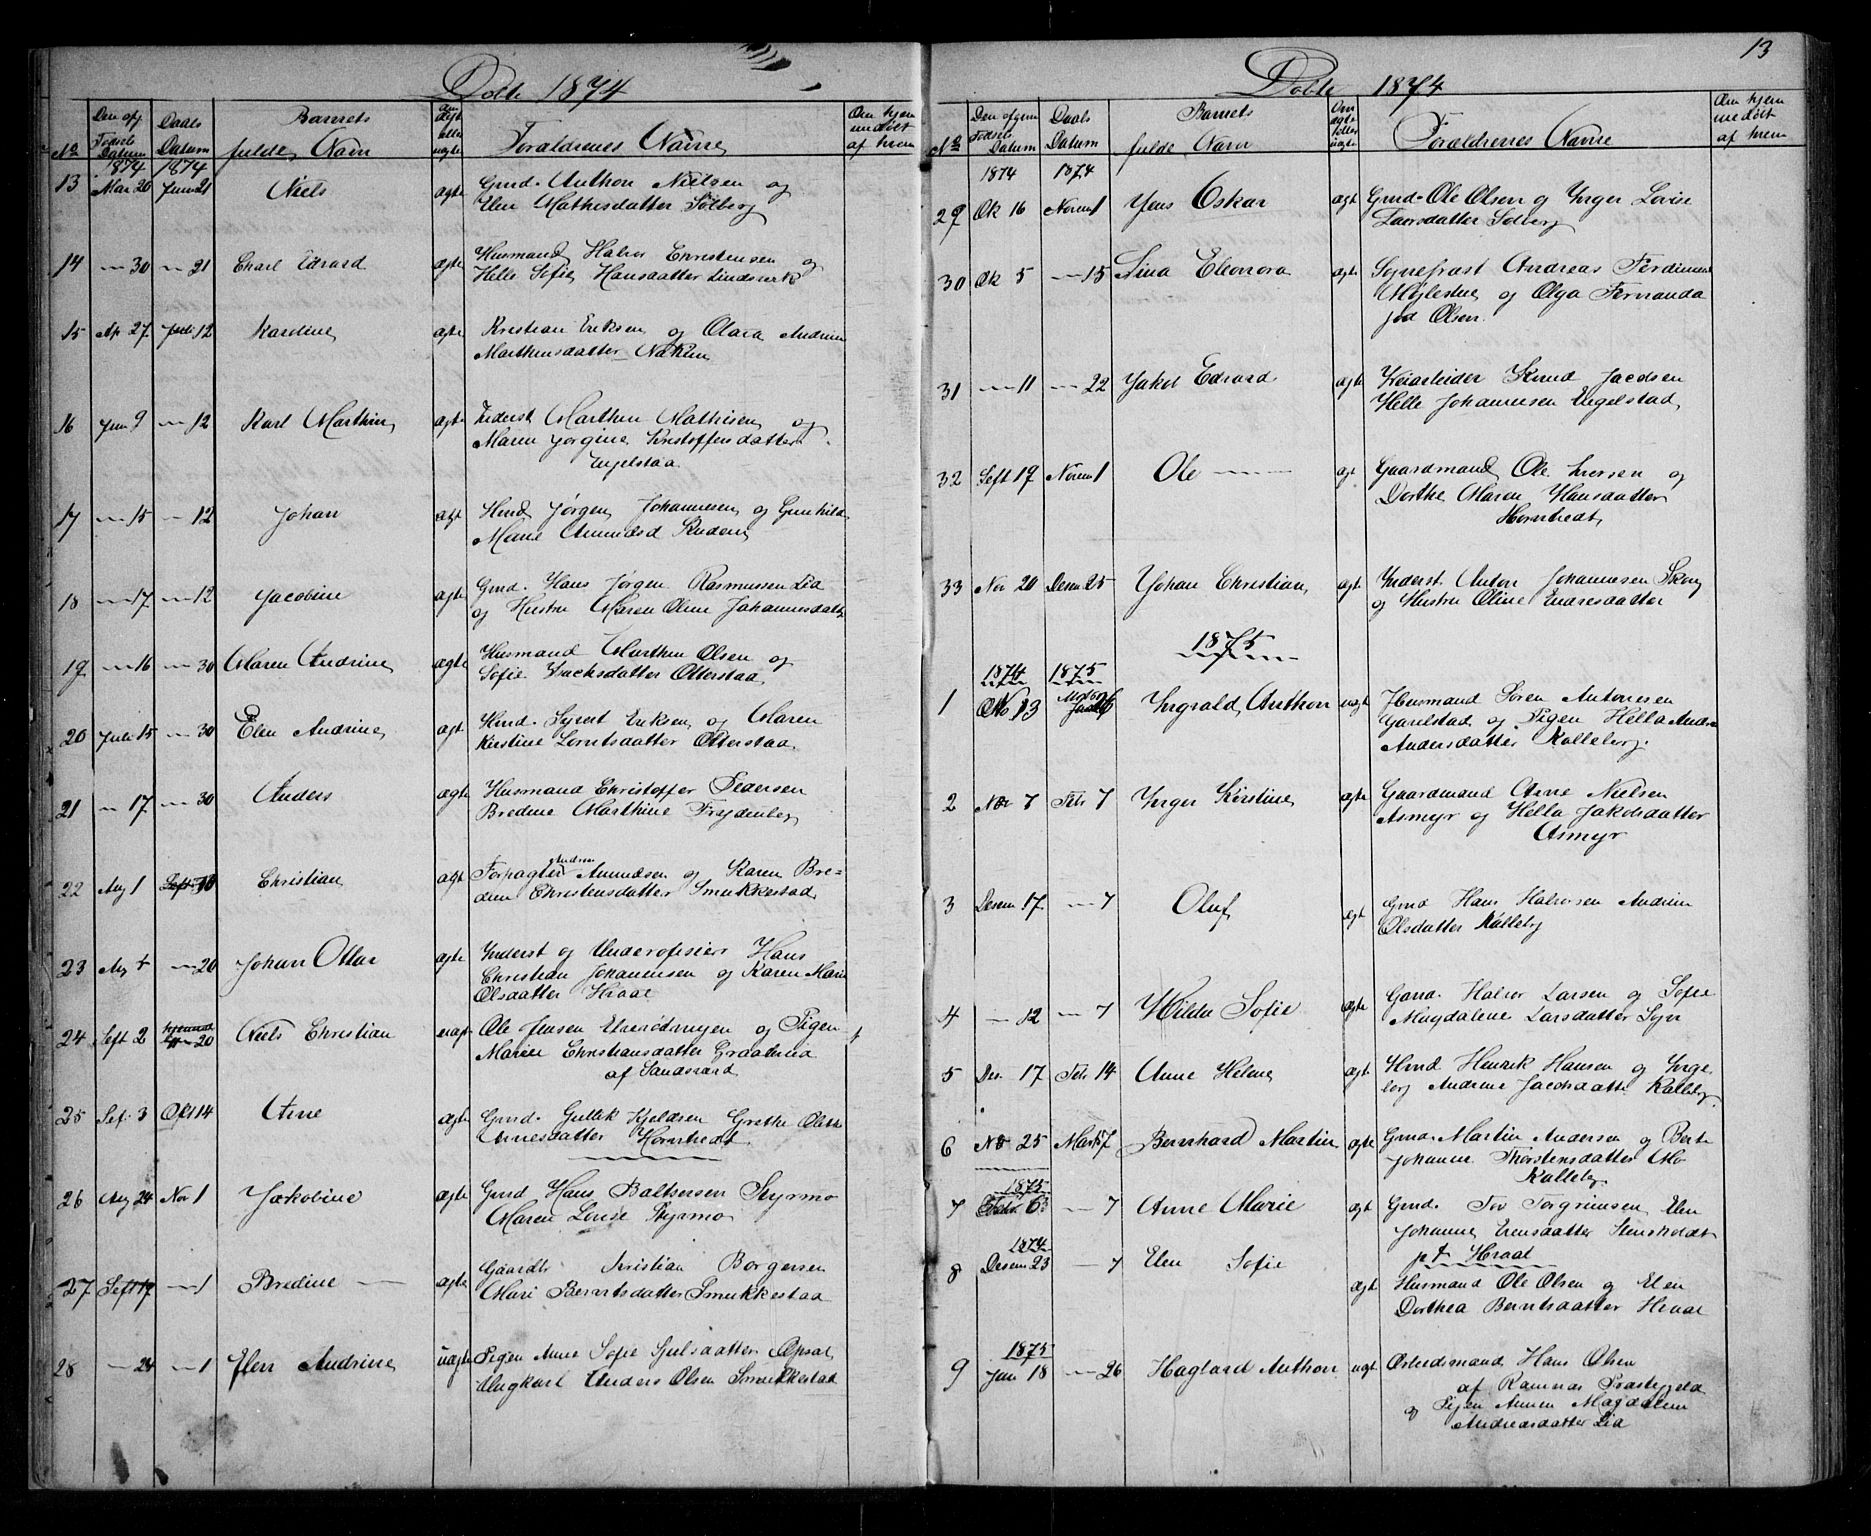 Døbte 1874
No
Den og Fødsels Datum
Daabs Datum
Barnets fulde Navn
Om ægte eller uægte
Forældrenes Navne
Om hjemmedøbt af hvem
1874 1874
13 Mai 20 Juni 21 Niels ægte Gmd. Anthon Nielsen og
Elen Mathisdatter Solberg
14 — 30 — 21 Charl Edvard ægte Husmand Halvor Christensen og
Helle Sofie Hansdatter Lindsverk
15 Ap. 27 Juli 12 Karoline ægte Kristian Eriksen og Clara Andrine
Marthinsdatter
16 Juni 9 — 12 Karl Marthin ægte Inderst Marthin Mathisen og
Maren Jørgine Kristoffersdatter
Engelstad
17 — 15 — 12 Johan ægte Hmd Jørgen Johannesen og Gunhild
Marie Amundsd Ruden
18 — 17 — 12 Jacobine ægte Gmd. Hans Jørgen Rasmussen Lia
og Hustru Maren Oline Johannesdatter
19 — 16 — 30 Maren Andrine ægte Husmand Marthin Olsen og
Sofie Isacksdatter Otterstad
20 Juli 15 — 30 Elen Andrine ægte Hmd. Syvert Eriksen og Maren
Kirstine Lorntsdatter Otterstad
21 — 17 — 30 Anders ægte Husmand Christoffer Pedersen
Bredine Marthine Frydenberg
22 Aug 1 Sept Christian ægte Forpagter Andreas Amundsen og Karen Bre-
dine Christensdatter Smukkestad
23 Aug — 20 Johan Ottar ægte Inderst og Underofisier Hans
Christian Johannesen og Karen Marie
Olsdatter Hvaal
24 Sept 2 20 Niels Christian uægt Ole Jensen og Pigen
Marie Christiansdatter
af Sandsværd
25 Sep. 3 Okt 14 Arne ægte Gmd. Gullik Kjeldsen Grethe Olette
Arnesdatter Hornstvedt
26 Aug 24 Nov 1 Jakobine ægte Gmd Hans Baltsersen Styrmo
Maren Lovise Styrmo
27 Sept 17 — 1 Bredine — ægte Gaardbr Kristian Borgersen
Mari Berntsdatter Smukkestad
28 — 24 — 1 Elen Andrine uægte Pigen Anne Sofie Opsal
Ungkarl Anders Olsen Smukkestad
13
Døbte 1874
No
Den ogsom Fødsels Datum
Daabs Datum
Barnets fulde Navn
Om ægte eller uægte
Forældrenes Navne
Om hjemmedøbt af hvem
1874 1874
29 Ok 16 Novem 1 Jens Oskar ægt Gmd. Ole Olsen og Inger Lovise
Larsdatter Solberg
30 Ok 5 — 15 Lina Eleonora ægte Sogneprest Andreas Ferdinand
og Olga Fernanda
fød Olsen.
31 — 11 — 22 Jakob Edvard ægte Veiarbeider Knud Jacobsen
Helle Johannesen Engelstad
32 Sept 19 Novem 1 Ole — ægt Gaardmand Ole Iversen og
Dorthe Maren Hansdatter
Hornstvedt
33 Nov 20 Desem 25 Johan Christian ægt Inderst Anton Johannesen Skov
og Hustru Oline Endresdatter
1875
1874 1875
1 No 13 26 Ingvald Anthon uægt Husmand Søren Antonesen
Gavelstad og Pigen Hella Andrea
Andersdatter Kolleberg.
2 Nov 7 Febr 7 Inger Kirstine ægte Gaardmand Arne Nielsen
Asmyr og Hella Jakobsdatter
Asmyr
3 Desem 17. — 7 Oluf ægt Gmd Hans Halvorsen Andrine
Olsdatter Kolleberg
4 — 12 — 7 Hilda Sofie ægte Gmd. Halvor Larsen og Sofie
Magdalene Larsdatter
5 Des. 17 Febr 14 Anne Helene ægt Hmd Henrik Hansen og Inge-
borg Andrine Jacobsdatter Kolleberg
6 No 25 Marts 7 Bernhard Martin ægte Gmd. Martin Andersen og Berte
Johanne Thorstensdatter Mo
Kolleberg
1875
7 6 — 7 Anne Marie ægt Gmd. Tov Torgrimsen Elen
Johanne Evensdatter Stensholdt
pt Hvaal
1874
8 Desem 23 — 7 Elen Sofie ægte Husmand Ole Olsen og Elen
Dorthea Berntsdatter Hvaal
1875
9 Jan 18 — 26 Haglard Anthon uægt Arbeidsmand Hans Olsen
af Ramnæs Præstegjeld
og Pigen Annen Magdalene
Andreasdatter Lia